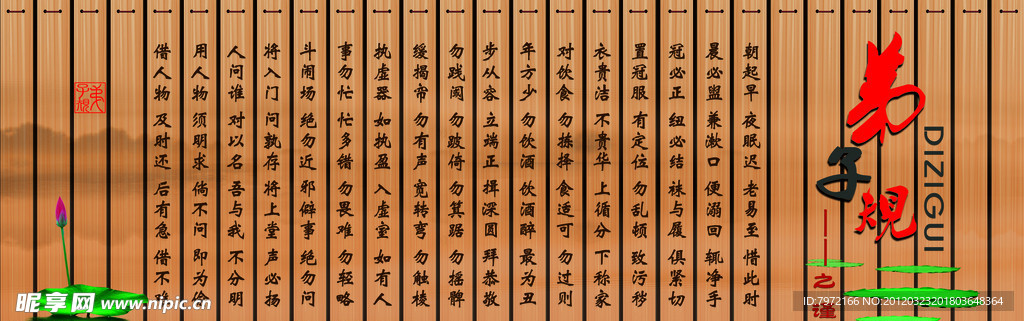 弟子规
DIZIGUI
之谨
朝起早 夜眠迟 老易至 惜此时
晨必盥 兼漱口 便溺回 辄净手
冠必正 纽必结 袜与履 俱紧切
置冠服 有定位 勿乱顿 致污秽
衣贵洁 不贵华 上循分 下称家
对饮食 勿拣择 食适可 勿过则
年方少 勿饮酒 饮酒醉 最为丑
步从容 立端正 揖深圆 拜恭敬
勿践阈 勿跛倚 勿箕踞 勿摇髀
缓揭帘 勿有声 宽转弯 勿触棱
执虚器 如执盈 入虚室 如有人
事勿忙 忙多错 勿畏难 勿轻略
斗闹场 绝勿近 邪僻事 绝勿问
将入门 问孰存 将上堂 声必扬
人问谁 对以名 吾与我 不分明
用人物 须明求 倘不问 即为
借人物 及时还 后有急 借不
昵享网 www.nipic.cn
ID:7972166 NO:20120323201803648364